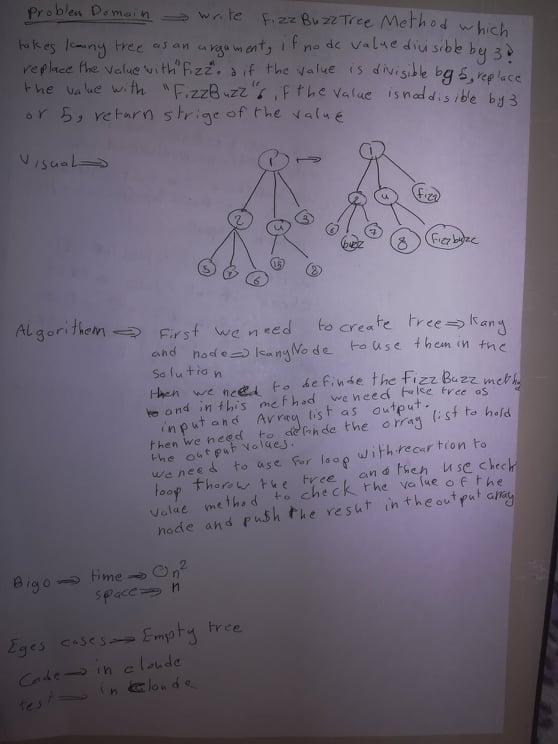 Problem Domain ⇒ write FizzBuzzTree Method which
takes kany tree as an argument, if node value divisible by 3?
replace the value with "Fizz". & if the value is divisible by 5, replace
the value with "FizzBuzz", if the value is
or 5, return of the value
Visual ⇒
1 → 1
2 4 3 2 4 Fizz
5 7 6 15 8 buzz 7 8 Fizzbuzz
Algorithem ⇒ First we need to create tree ⇒ kany
and node ⇒ kanyNode to use them in the
solution
then we need to definde the FizzBuzz
and in this method we need take tree as
input and Array list as output.
then we need to definde the array list to hold
the output values.
we need to use for loop with recartion to
loop thorow the tree and then use check
value method to check the value of the
node and push the result in the output array
Bigo ⇒ time ⇒ On²
space ⇒ n
Eges cases ⇒ Empty tree
Code → in cloude
test → in cloude